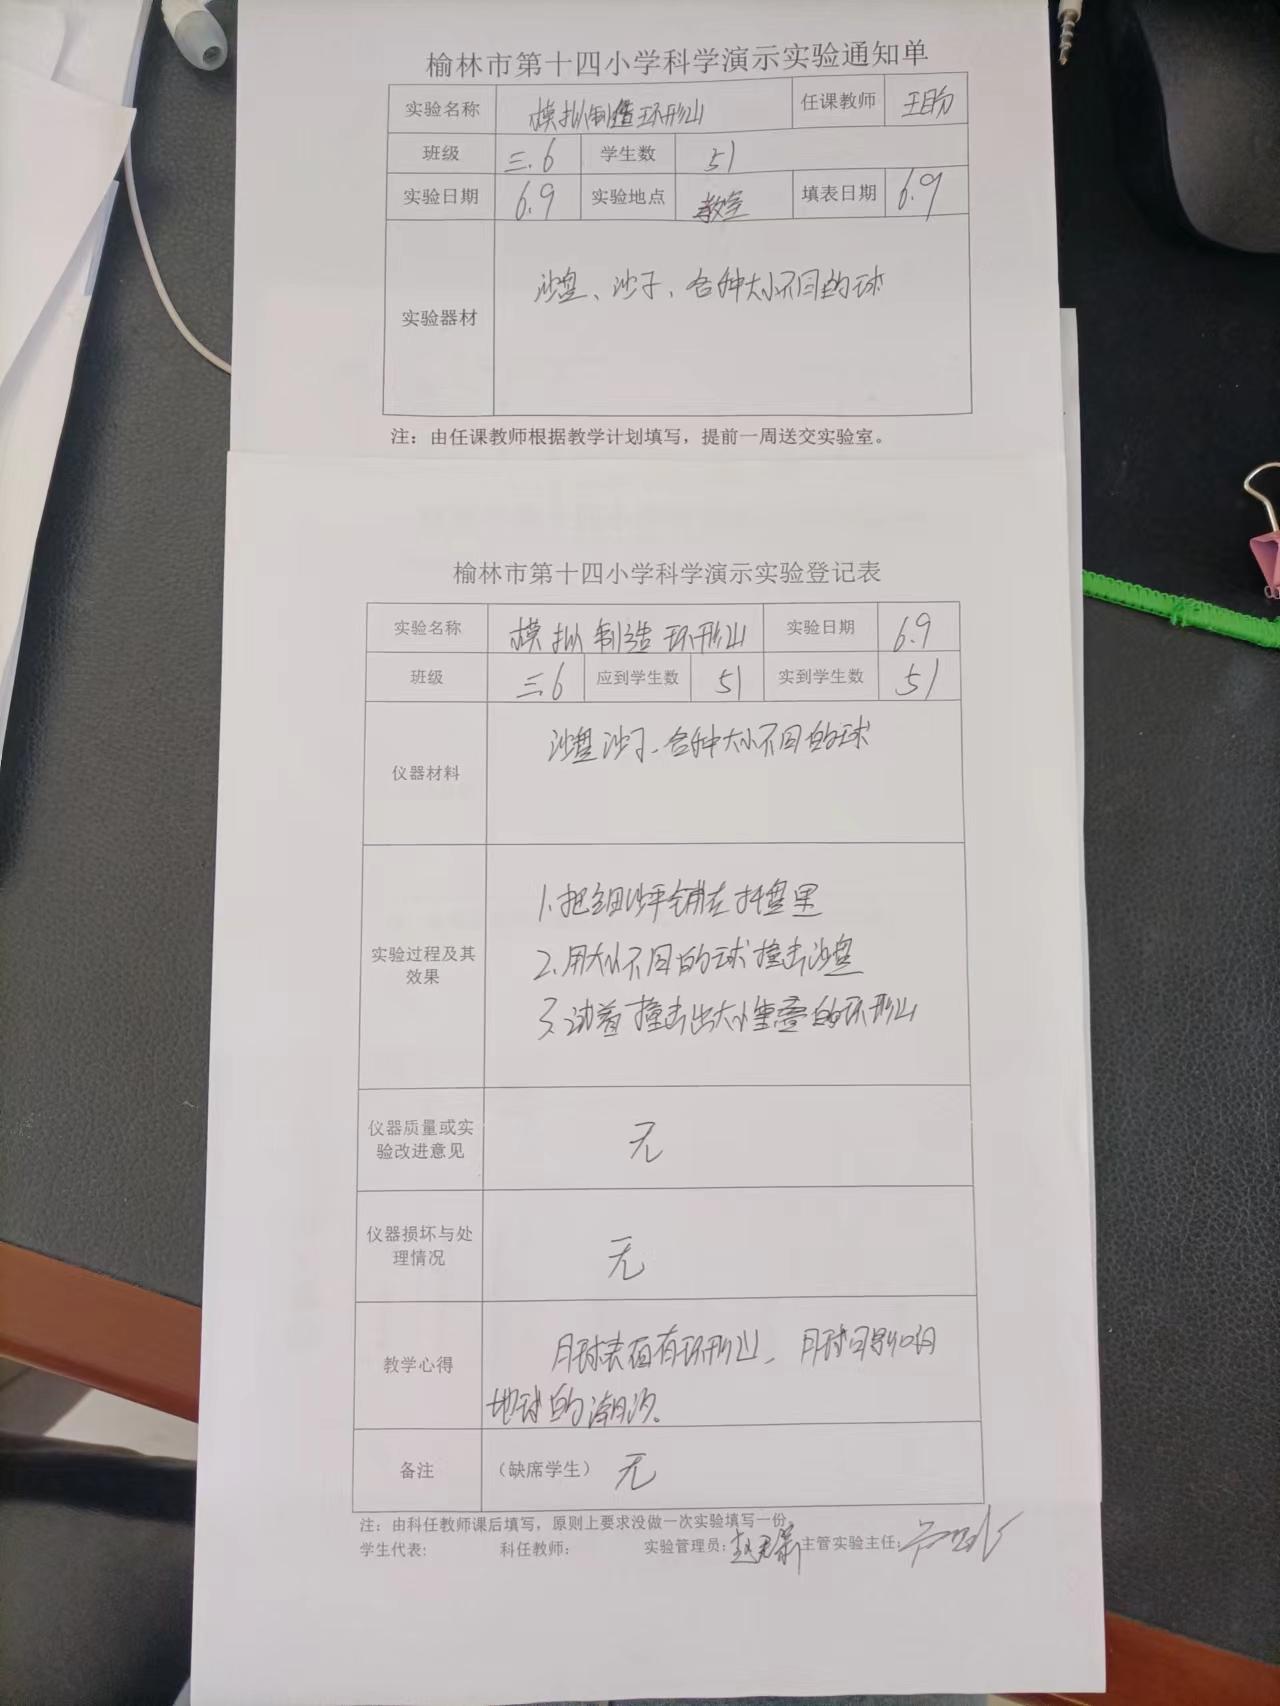 榆林市第十四小学科学演示实验通知单
实验名称 模拟制造环形山 任课教师
班级 三.6 学生数 51
实验日期 6.9 实验地点 教室 填表日期 6.9
实验器材 沙盘、沙子、各种大小不同的球
注：由任课教师根据教学计划填写，提前一周送交实验室。
榆林市第十四小学科学演示实验登记表
实验名称 模拟制造环形山 实验日期 6.9
班级 三.6 应到学生数 51 实到学生数 51
仪器材料 沙盘 沙子、各种大小不同的球
实验过程及其
效果
1.把细沙平铺在托盘里
2.用大小不同的球撞击沙盘
3.试着撞击出大小重叠的环形山
仪器质量或实
验改进意见
无
仪器损坏与处
理情况
无
教学心得
月球表面有环形山、月球可影响
地球的潮汐。
备注 （缺席学生） 无
注：由科任教师课后填写，原则上要求没做一次实验填写一份。
学生代表： 科任教师： 实验管理员： 主管实验主任：